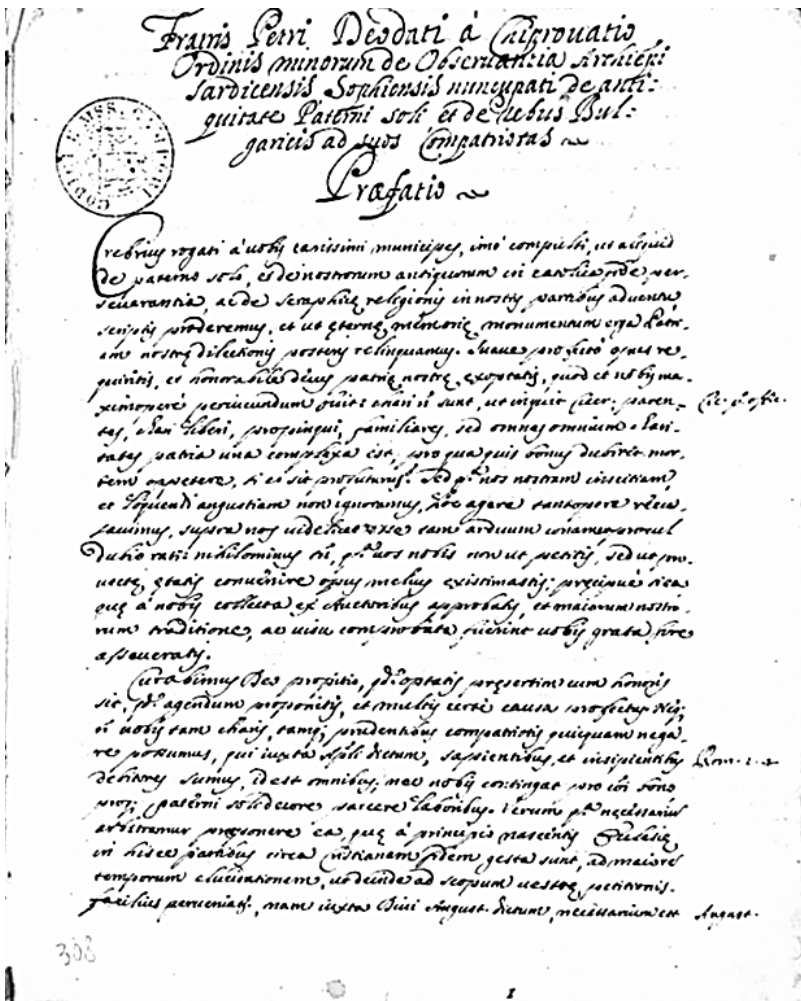 Fratris Petri Deodati à Chiprovatio
Ordinis minorum de Observantia Archiep̃i
Sardicensis Sophiensis nuncupati de anti:
quitate Paterni soli et de rebus Bul:
garicis ad suos Compatriotas
Præfatio
CODICI E MSS. CAMPORI
Crebrius rogati à vobis carissimi municipes, imò compulsi, ut aliquid
de paterno solo, et de nostrorum antiquorum in catholica fide per-
severantia, ac de Seraphicę religionis in nostris partibus adventu
scriptis proderemus, et ut ęternę memorię monumentum erga Patri-
am nostrę dilectionis posteris relinquamus. Suave profectò opus re-
quiritis, et honorabile decus patrię nostrę exoptatis, quod et nobis ma-
ximoperè periucundum
sunt, ut inquit Cicer: paren- Cic. p.º offic.
tes, chari liberi, propinqui, familiares, sed omnes omnium chari-
tates patria una complexa est, pro qua quis bonus dubitet mor-
tem oppetere, si ei sit profuturus? Sed nos nostram inscitiam
et loquendi angustiam non ignoramus, agere tantopere recu-
savimus, supra nos videlicet esse tam arduum conamen procul
dubio rati: nihilominus vos nobis non ut petitis, sed ut pro-
vectę ętatis convenire opus melius existimastis; pręcipuè
quę à nobis collecta ex Auctoribus approbatis, et maiorum nostro-
rum traditione, ac visu comprobata fuerint vobis grata fore
asseveratis.
Curabimus Deo propitio, optatis pręsertim cum honoris
sit, agendum proponitis, et multis certè causa profectus Neq;
vobis tam charis, tamq; prudentibus compatriotis quicquam nega-
re possumus, qui iuxta Ap̃li dictum, sapientibus, et insipientibus Rom. 1.
debitores sumus, id est omnibus; nec nobis contingat pro bono
paterni soli decore parcere laboribus. Verum necessarium
arbitramur pręponere ea, quę à principio nascentis Ecclesię
in hisce partibus circa Christianam fidem gesta sunt, ad maiorem
temporum elucidationem, ut deinde ad scopum vestrę petitionis
facilius perveniatis, nam iuxta Divi August. dictum, necessarium est August.
308
1